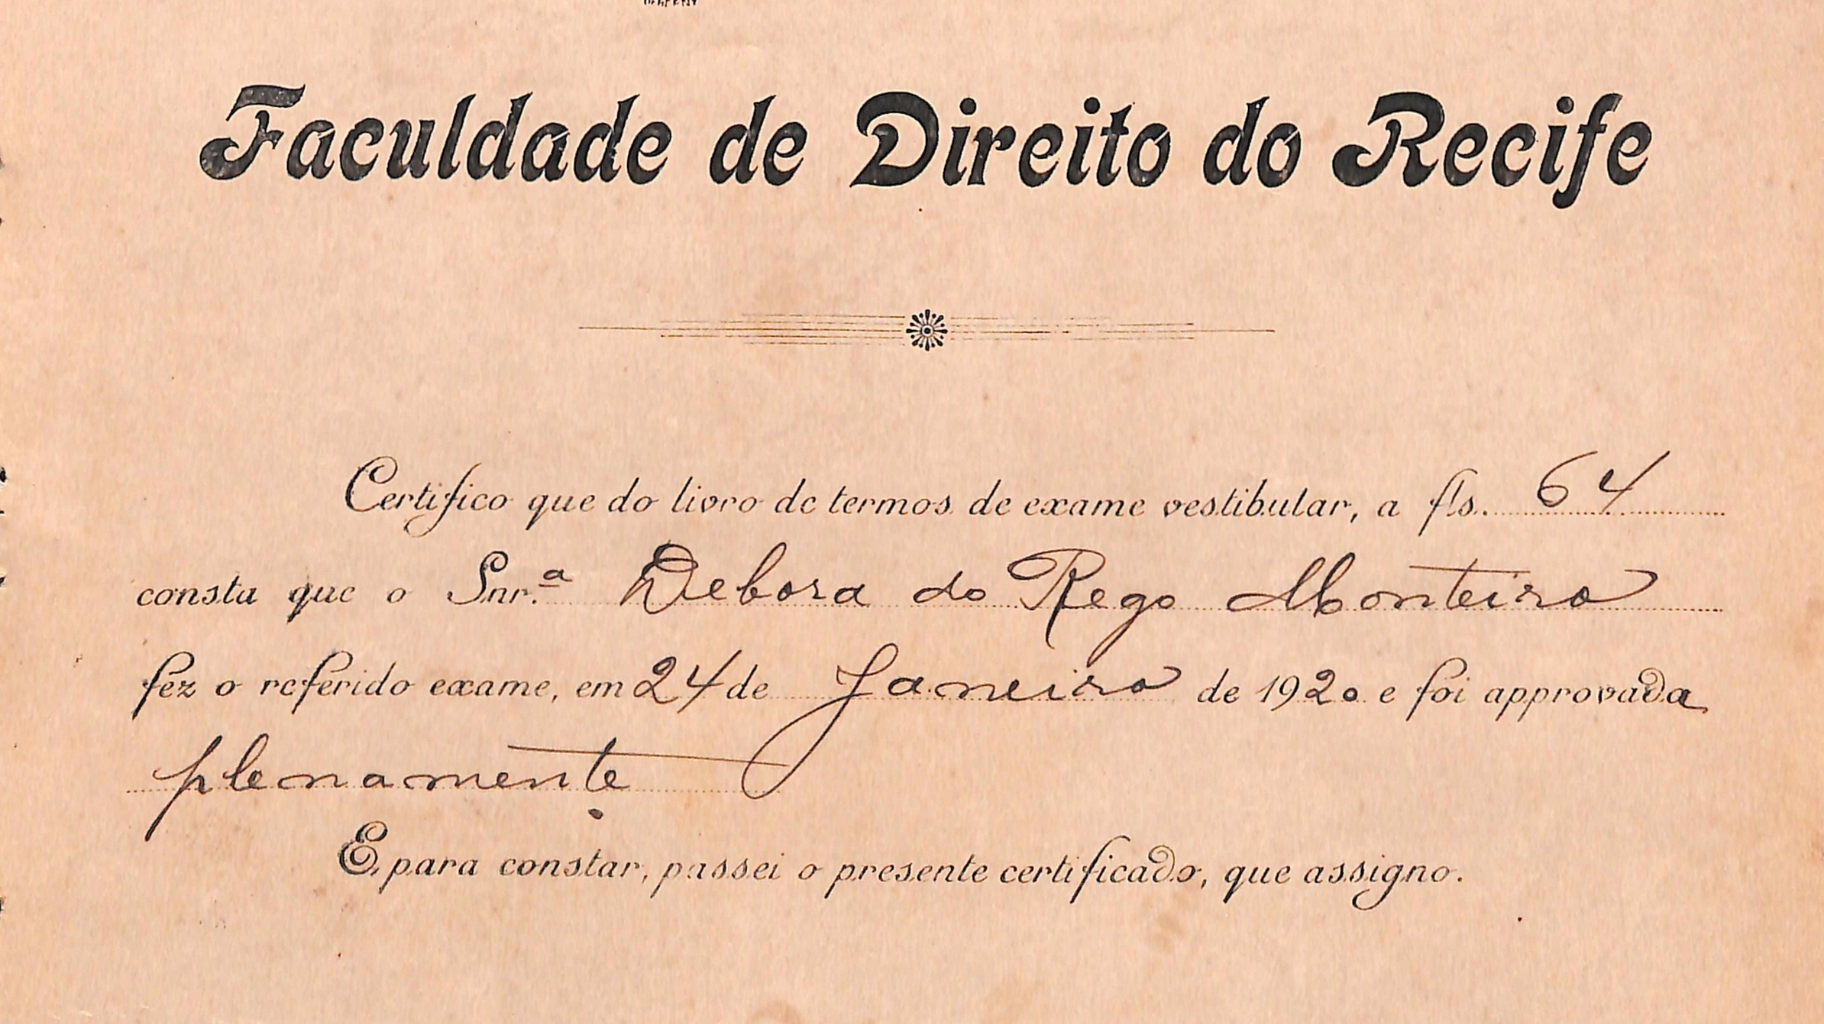 Faculdade de Direito do Recife
Certifico que do livro de termos de exame vestibular, a fls. 64
consta que o Snr.ª Debora do Rego Monteiro
fez o referido exame, em 24 de Janeiro de 1920 e foi approvada
plenamente
E, para constar, passei o presente certificado, que assigno.